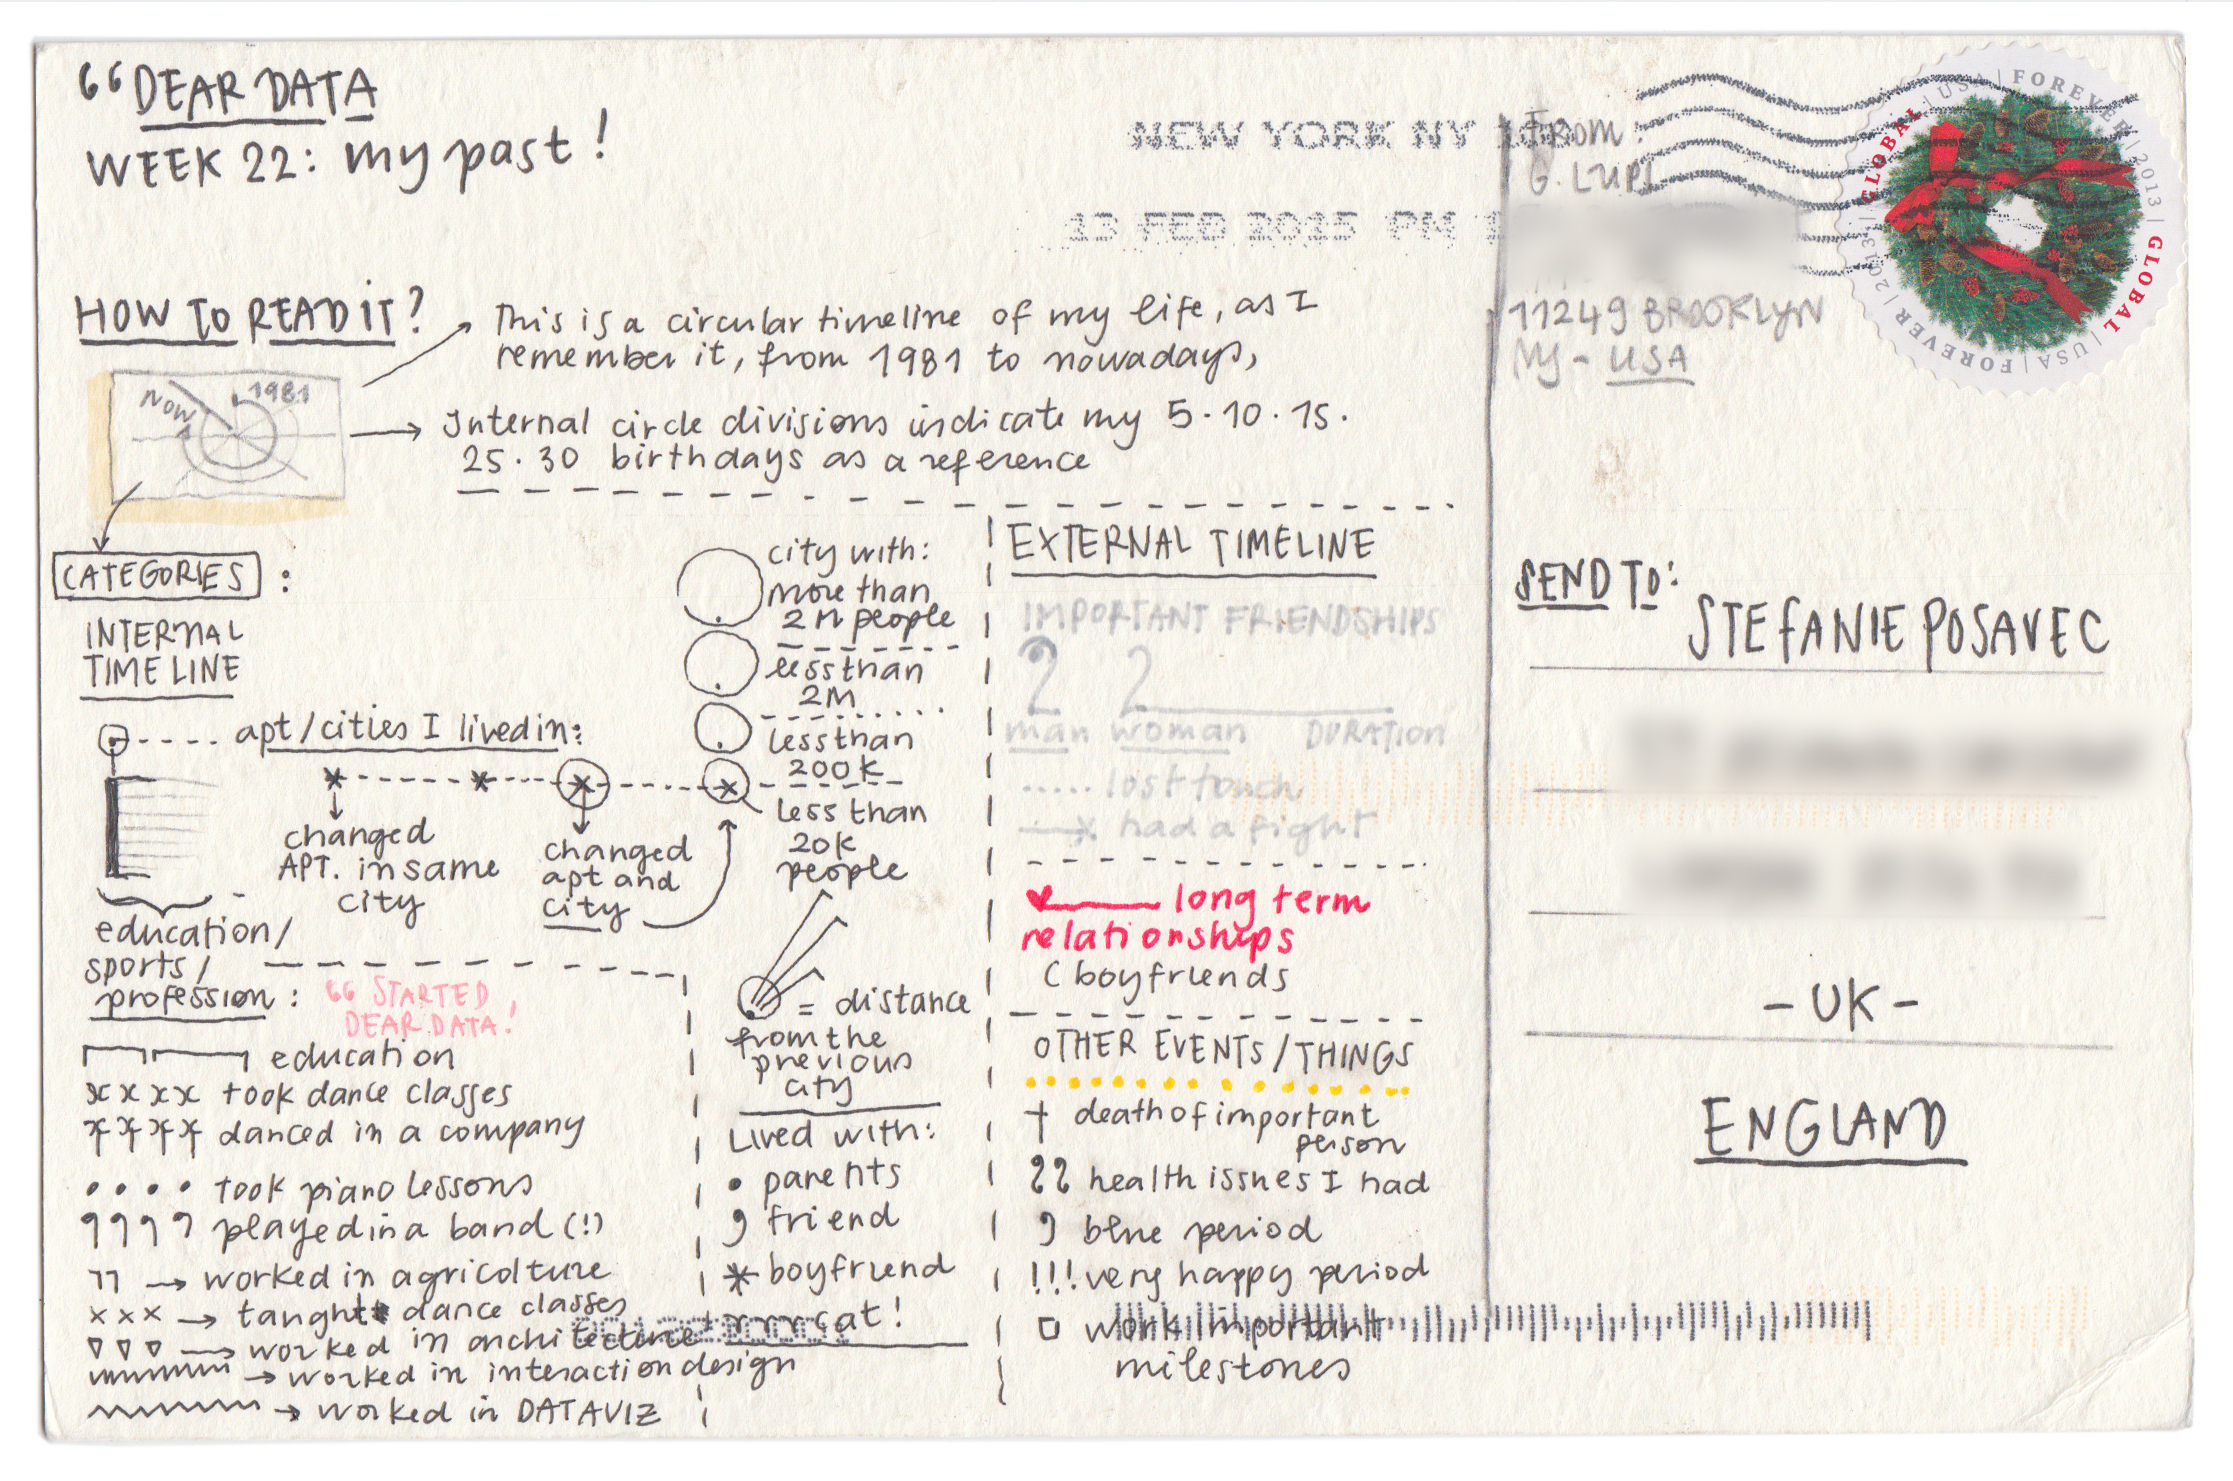 “DEAR DATA
WEEK 22: my past!
NEW YORK NY
13 FEB 2015 PM
From:
G. LUPI
11249 BROOKLYN
NY - USA
GLOBAL | USA | FOREVER | 2013 | GLOBAL | USA | FOREVER | 2013 |
HOW TO READ IT?
This is a circular timeline of my life, as I
remember it, from 1981 to nowadays,
NOW
1981
Internal circle divisions indicate my 5·10·15·
25·30 birthdays as a reference
CATEGORIES :
INTERNAL
TIMELINE
apt/cities I lived in:
changed
APT. in same
city
changed
apt and
city
city with:
more than
2M people
less than
2M
less than
200K
less than
20K
people
= distance
from the
previous
city
Lived with:
• parents
friend
* boyfriend
xxx cat!
education/
sports/
profession:
“ STARTED
DEAR DATA!
education
xxxx took dance classes
danced in a company
• • • • took piano lessons
9999 played in a band (!)
77 → worked in agricolture
××× → taught dance classes
▽▽▽ → worked in architecture
→ worked in interaction design
→ worked in DATAVIZ
EXTERNAL TIMELINE
IMPORTANT FRIENDSHIPS
2 2
man woman DURATION
..... lost touch
—x had a fight
♥— long term
relationships
(boyfriends
OTHER EVENTS/THINGS
† death of important
person
health issues I had
blue period
!!! very happy period
□ work important
milestones
SEND TO:
STEFANIE POSAVEC
- UK -
ENGLAND